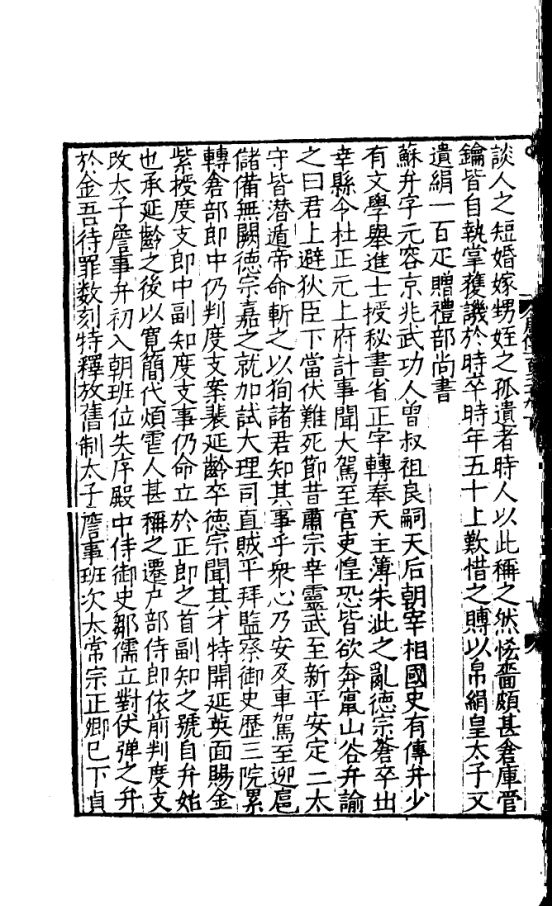 談人之短婚嫁甥姪之孤遺者時人以此稱之然恡嗇頗甚倉庫管
鑰皆自執掌獲譏於時卒時年五十上歎惜之賻以帛絹皇太子又
遺絹一百疋贈禮部尚書
蘇弁字元容京兆武功人曾叔祖良嗣天后朝宰相國史有傳弁少
有文學舉進士授秘書省正字轉奉天主簿朱泚之亂德宗蒼卒出
幸縣令杜正元上府計事聞大駕至官吏惶恐皆欲奔竄山谷弁諭
之曰君上避狄臣下當伏難死節昔肅宗幸靈武至新平安定二太
守皆潜遁帝命斬之以狥諸君知其事乎衆心乃安及車駕至迎扈
儲備無闕德宗嘉之就加試大理司直賊平拜監察御史歷三院累
轉倉部郎中仍判度支案裴延齡卒德宗聞其才特開延英面賜金
紫授度支郎中副知度支事仍命立於正郎之首副知之號自弁始
也承延齡之後以寬簡代煩虐人甚稱之遷户部侍郎依前判度支
改太子詹事弁初入朝班位失序殿中侍御史鄒儒立對伏弹之弁
於金吾待罪数刻特釋放舊制太子詹事班次太常宗正卿已下貞